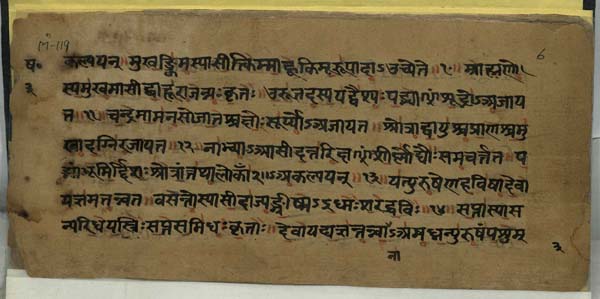 M-119
6
ष॰
३
कल्पयन् ॥ मुखङ्किमस्यासीत्किम्बाहूकिमूरूपादाऽउच्येते ॥१०॥ ब्राह्मणो
स्यमुखमासीद्बाहूराजन्यःकृतः ॥ ऊरूतदस्ययद्वैश्यःपद्भ्याᳪशूद्रोऽअजाय
त ॥११॥ चन्द्रमामनसोजातश्चक्षोःसूर्योऽअजायत ॥ श्रोत्राद्वायुश्चप्राणश्चमु
खादग्निरजायत ॥१२॥ नाभ्याऽआसीदन्तरिक्षᳪशीर्ष्णोद्यौःसमवर्त्तत ॥ प
द्भ्याम्भूमिर्द्दिशःश्रोत्रात्तथालोकाँ२ऽअकल्पयन् ॥१३॥ यत्पुरुषेणहविषादेवा
यज्ञमतन्वत ॥ वसन्तोस्यासीदाज्यङ्ग्रीष्मऽइध्मःशरद्धविः ॥१४॥ सप्तास्यास
न्परिधयस्त्रिःसप्तसमिधःकृताः ॥ देवायद्यज्ञन्तन्वाऽअबध्नन्पुरुषंपशुम्
३
ना